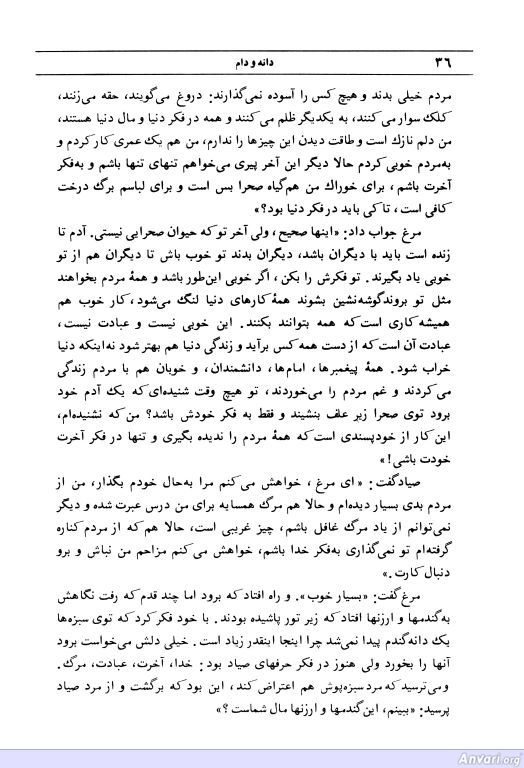 ۳۶ دانه و دام
مردم خیلی بدند و هیچ کس را آسوده نمی‌گذارند: دروغ می‌گویند، حقه می‌زنند،
کلک سوار می‌کنند، به یکدیگر ظلم می‌کنند و همه در فکر دنیا و مال دنیا هستند،
من دلم نازک است و طاقت دیدن این چیزها را ندارم، من هم یک عمری کار کردم و
به‌مردم خوبی کردم حالا دیگر این آخر پیری می‌خواهم تنهای تنها باشم و به‌فکر
آخرت باشم، برای خوراک من هم‌گیاه صحرا بس است و برای لباسم برگ درخت
کافی است، تا کی باید در فکر دنیا بود؟»
مرغ جواب داد: «اینها صحیح، ولی آخر تو که حیوان صحرایی نیستی. آدم تا
زنده است باید با دیگران باشد، دیگران بدند تو خوب باش تا دیگران هم از تو
خوبی یاد بگیرند. تو فکرش را بکن، اگر خوبی این‌طور باشد و همهٔ مردم بخواهند
مثل تو بروند گوشه‌نشین بشوند همهٔ کارهای دنیا لنگ می‌شود، کار خوب هم
همیشه کاری است که همه بتوانند بکنند. این خوبی نیست و عبادت نیست،
عبادت آن است که از دست همه کس برآید و زندگی دنیا هم بهتر شود نه اینکه دنیا
خراب شود. همهٔ پیغمبرها، امام‌ها، دانشمندان، و خوبان هم با مردم زندگی
می‌کردند و غم مردم را می‌خوردند، تو هیچ وقت شنیده‌ای که یک آدم خود
برود توی صحرا زیر علف بنشیند و فقط به فکر خودش باشد؟ من که نشنیده‌ام،
این کار از خودپسندی است که همهٔ مردم را ندیده بگیری و تنها در فکر آخرت
خودت باشی!»
صیاد گفت: «ای مرغ، خواهش می‌کنم مرا به‌حال خودم بگذار، من از
مردم بدی بسیار دیده‌ام و حالا هم مرگ همسایه برای من درس عبرت شده و دیگر
نمی‌توانم از یاد مرگ غافل باشم، چیز غریبی است، حالا هم که از مردم کناره
گرفته‌ام تو نمی‌گذاری به‌فکر خدا باشم، خواهش می‌کنم مزاحم من نباش و برو
دنبال کارت.»
مرغ گفت: «بسیار خوب». و راه افتاد که برود اما چند قدم که رفت نگاهش
به گندمها و ارزنها افتاد که زیر تور پاشیده بودند. با خود فکر کرد که توی سبزه‌ها
یک دانه گندم پیدا نمی‌شد چرا اینجا اینقدر زیاد است. خیلی دلش می‌خواست برود
آنها را بخورد ولی هنوز در فکر حرفهای صیاد بود: خدا، آخرت، عبادت، مرگ.
و می‌ترسید که مرد سبزه‌پوش هم اعتراض کند، این بود که برگشت و از مرد صیاد
پرسید: «ببینم، این گندمها و ارزنها مال شماست؟»
Anvari.org